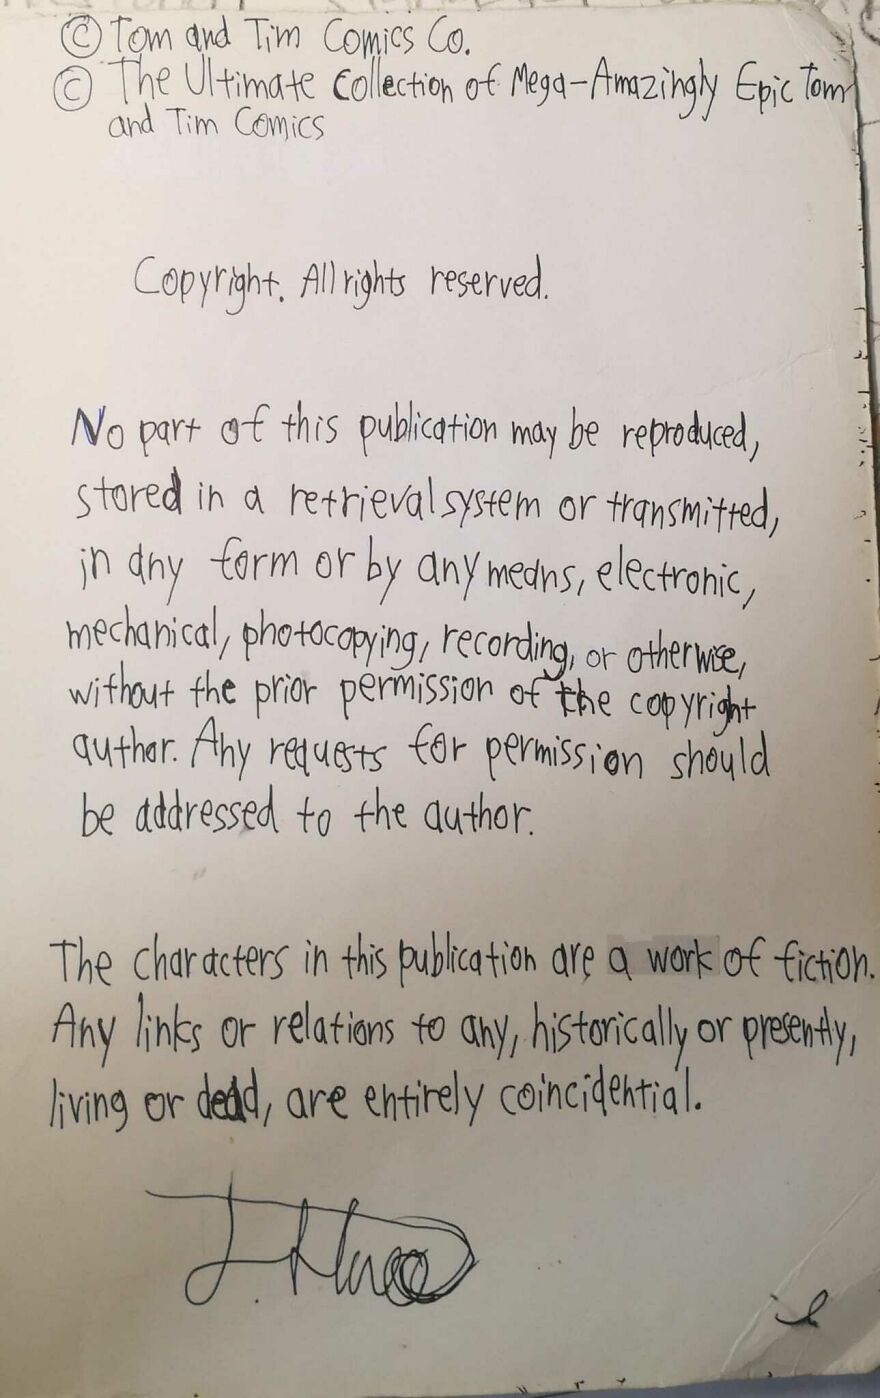 © Tom and Tim Comics Co.
© The Ultimate Collection of Mega-Amazingly Epic Tom
and Tim Comics
Copyright. All rights reserved.
No part of this publication may be reproduced,
stored in a retrieval system or transmitted,
in any form or by any means, electronic,
mechanical, photocopying, recording, or otherwise,
without the prior permission of the copyright
author. Any requests for permission should
be addressed to the author.
The characters in this publication are a work of fiction.
Any links or relations to any, historically or presently,
living or dead, are entirely coincidential.